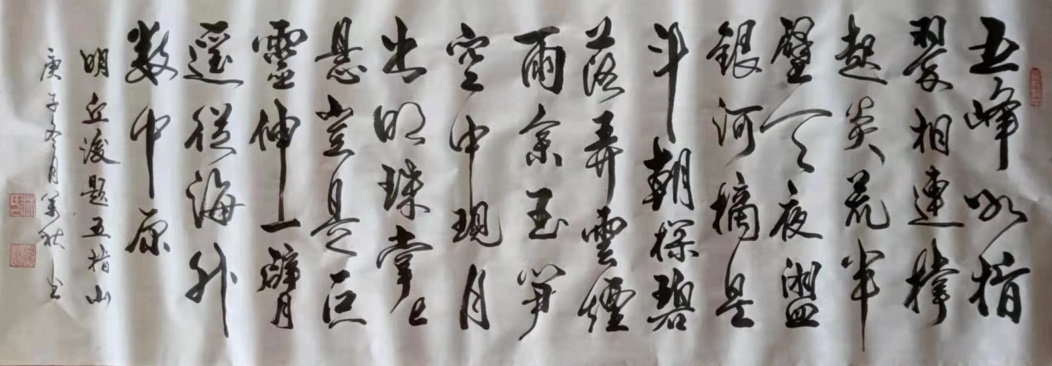 五峰如指
翠相連撐
起炎荒半
壁天夜盥
銀河摘星
斗朝探碧
落弄雲煙
雨余玉笋
空中現月
出明珠掌上
悬豈是巨
靈伸一臂
遥從海外
數中原
明丘浚题五指山
庚子冬月